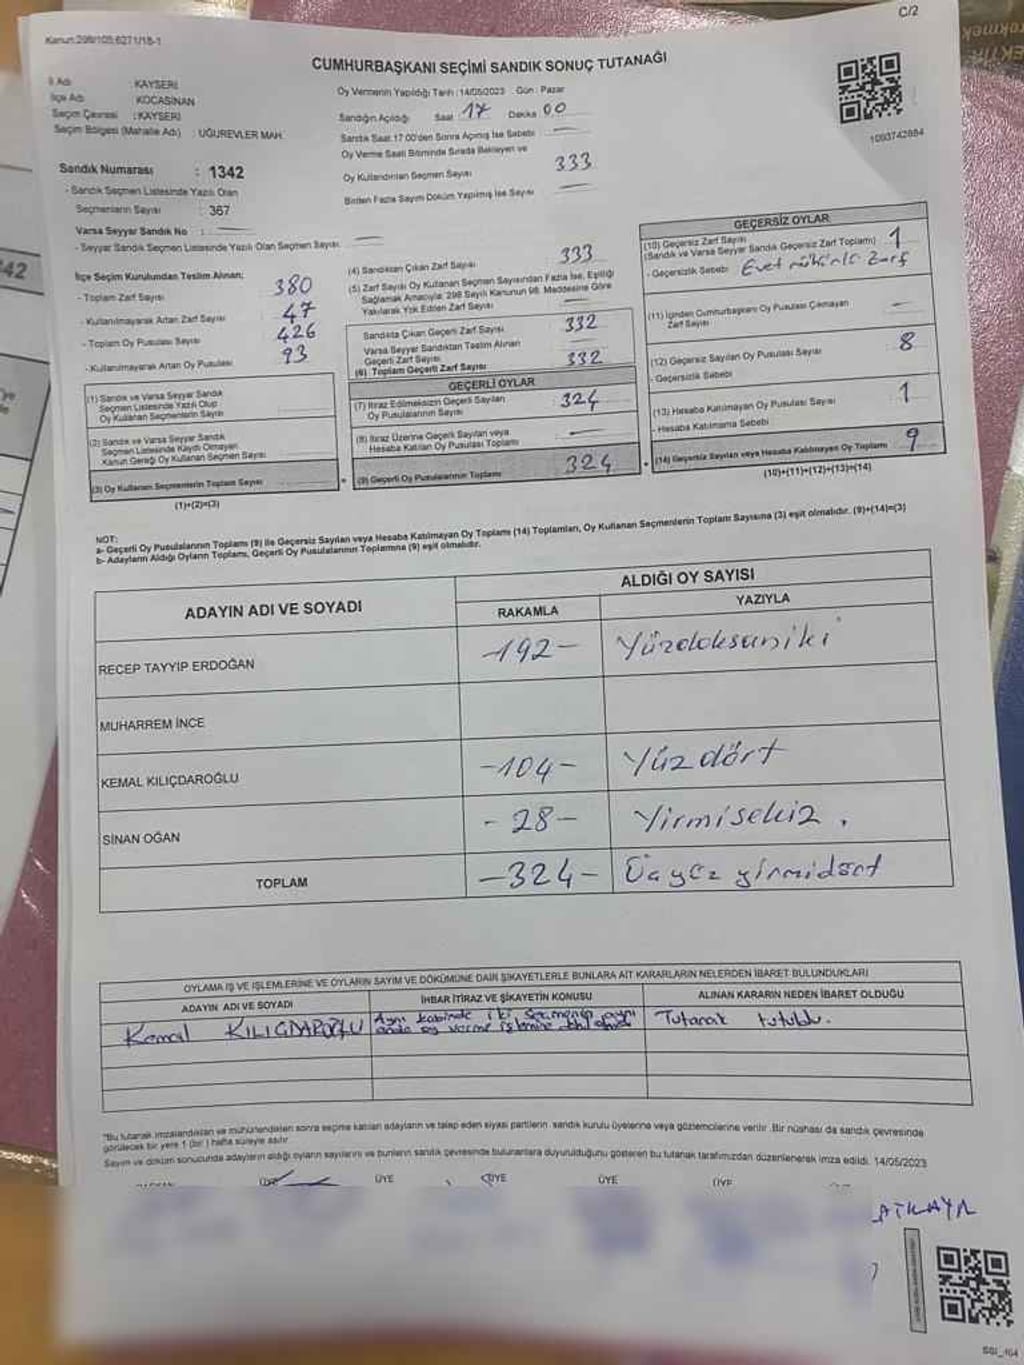 C/2
Kanun:298/105;6271/18-1
CUMHURBAŞKANI SEÇİMİ SANDIK SONUÇ TUTANAĞI
İl Adı : KAYSERİ
İlçe Adı : KOCASİNAN
Seçim Çevresi : KAYSERİ
Seçim Bölgesi (Mahalle Adı) : UĞUREVLER MAH.
Oy Vermenin Yapıldığı Tarih :14/05/2023 Gün : Pazar
Sandığın Açıldığı Saat 17 Dakika 00
Sandık Saat 17.00'den Sonra Açılmış İse Sebebi
Oy Verme Saati Bitiminde Sırada Bekleyen ve
Oy Kullandırılan Seçmen Sayısı 333
Birden Fazla Sayım Döküm Yapılmış İse Sayısı
1093742884
Sandık Numarası : 1342
- Sandık Seçmen Listesinde Yazılı Olan
Seçmenlerin Sayısı : 367
Varsa Seyyar Sandık No :
- Seyyar Sandık Seçmen Listesinde Yazılı Olan Seçmen Sayısı:
İlçe Seçim Kurulundan Teslim Alınan;
- Toplam Zarf Sayısı 380
- Kullanılmayarak Artan Zarf Sayısı 47
- Toplam Oy Pusulası Sayısı 426
- Kullanılmayarak Artan Oy Pusulası 93
(1) Sandık ve Varsa Seyyar Sandık
Seçmen Listesinde Yazılı Olup
Oy Kullanan Seçmenlerin Sayısı
(2) Sandık ve Varsa Seyyar Sandık
Seçmen Listesinde Kaydı Olmayan
Kanun Gereği Oy Kullanan Seçmen Sayısı
(3) Oy Kullanan Seçmenlerin Toplam Sayısı
(1)+(2)=(3)
(4) Sandıktan Çıkan Zarf Sayısı 333
(5) Zarf Sayısı Oy Kullanan Seçmen Sayısından Fazla İse, Eşitliği
Sağlamak Amacıyla; 298 Sayılı Kanunun 98. Maddesine Göre
Yakılarak Yok Edilen Zarf Sayısı
Sandıkta Çıkan Geçerli Zarf Sayısı 332
Varsa Seyyar Sandıktan Teslim Alınan
Geçerli Zarf Sayısı
(6) Toplam Geçerli Zarf Sayısı 332
GEÇERLİ OYLAR
(7) İtiraz Edilmeksizin Geçerli Sayılan
Oy Pusulalarının Sayısı 324
(8) İtiraz Üzerine Geçerli Sayılan veya
Hesaba Katılan Oy Pusulası Toplamı
(9) Geçerli Oy Pusulalarının Toplamı 324
GEÇERSİZ OYLAR
(10) Geçersiz Zarf Sayısı
(Sandık ve Varsa Seyyar Sandık Geçersiz Zarf Toplamı) 1
- Geçersizlik Sebebi Evet mühürlü Zarf
(11) İçinden Cumhurbaşkanı Oy Pusulası Çıkmayan
Zarf Sayısı
(12) Geçersiz Sayılan Oy Pusulası Sayısı 8
- Geçersizlik Sebebi
(13) Hesaba Katılmayan Oy Pusulası Sayısı 1
- Hesaba Katılmama Sebebi
(14) Geçersiz Sayılan veya Hesaba Katılmayan Oy Toplamı 9
(10)+(11)+(12)+(13)=(14)
NOT:
a- Geçerli Oy Pusulalarının Toplamı (9) ile Geçersiz Sayılan veya Hesaba Katılmayan Oy Toplamı (14) Toplamları, Oy Kullanan Seçmenlerin Toplam Sayısına (3) eşit olmalıdır. (9)+(14)=(3)
b- Adayların Aldığı Oyların Toplamı, Geçerli Oy Pusulalarının Toplamına (9) eşit olmalıdır.
ADAYIN ADI VE SOYADI
ALDIĞI OY SAYISI
RAKAMLA YAZIYLA
RECEP TAYYİP ERDOĞAN -192- Yüzdoksaniki
MUHARREM İNCE
KEMAL KILIÇDAROĞLU -104- Yüzdört
SİNAN OĞAN -28- Yirmisekiz.
TOPLAM -324- Üçyüz yirmidört
OYLAMA İŞ VE İŞLEMLERİNE VE OYLARIN SAYIM VE DÖKÜMÜNE DAİR ŞİKAYETLERLE BUNLARA AİT KARARLARIN NELERDEN İBARET BULUNDUKLARI
ADAYIN ADI VE SOYADI İHBAR İTİRAZ VE ŞİKAYETİN KONUSU ALINAN KARARIN NEDEN İBARET OLDUĞU
Kemal KILIÇDAROĞLU Aynı kabinde iki seçmenin aynı Tutanak tutuldu.
anda oy verme işlemine
*Bu tutanak imzalandıktan ve mühürlendikten sonra seçime katılan adayların ve talep eden siyasi partilerin sandık kurulu üyelerine veya gözlemcilerine verilir. Bir nüshası da sandık çevresinde
görülecek bir yere 1 (bir ) hafta süreyle asılır.
Sayım ve döküm sonucunda adayların aldığı oyların sayılarını ve bunların sandık çevresinde bulunanlara duyurulduğunu gösteren bu tutanak tarafımızdan düzenlenerek imza edildi. 14/05/2023
BAŞKAN ÜYE ÜYE ÜYE ÜYE ÜYE